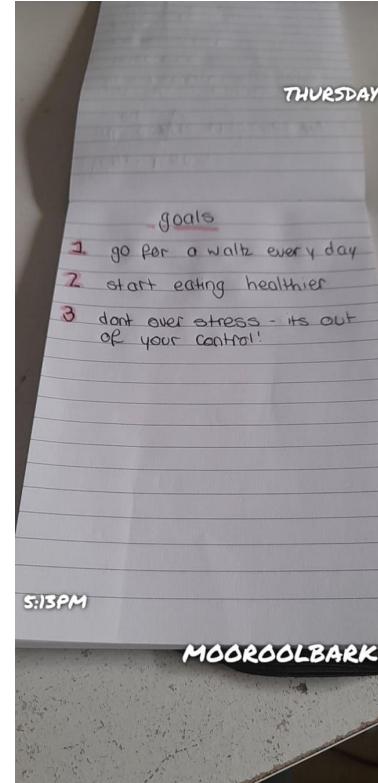 THURSDAY
goals
1 go for a walk every day
2 start eating healthier
3 dont over stress - its out
of your control!
5:13PM
MOOROOLBARK